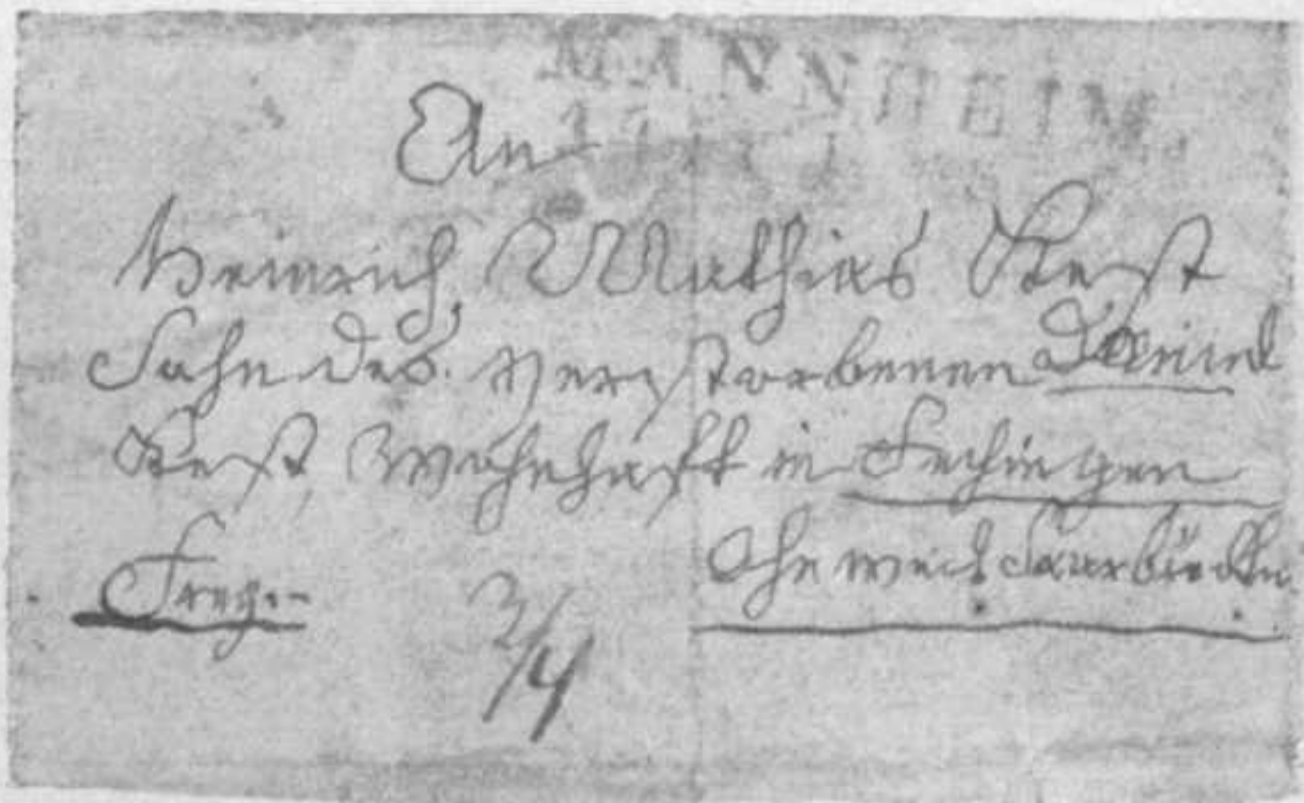 MANNHEIM.
An
Heinrich Mathias Kest
Sohn des verstorbenen Daniel
Kest Wohnhaft in Fechingen
Ohnweit Saarbrücken
Frey
2/4